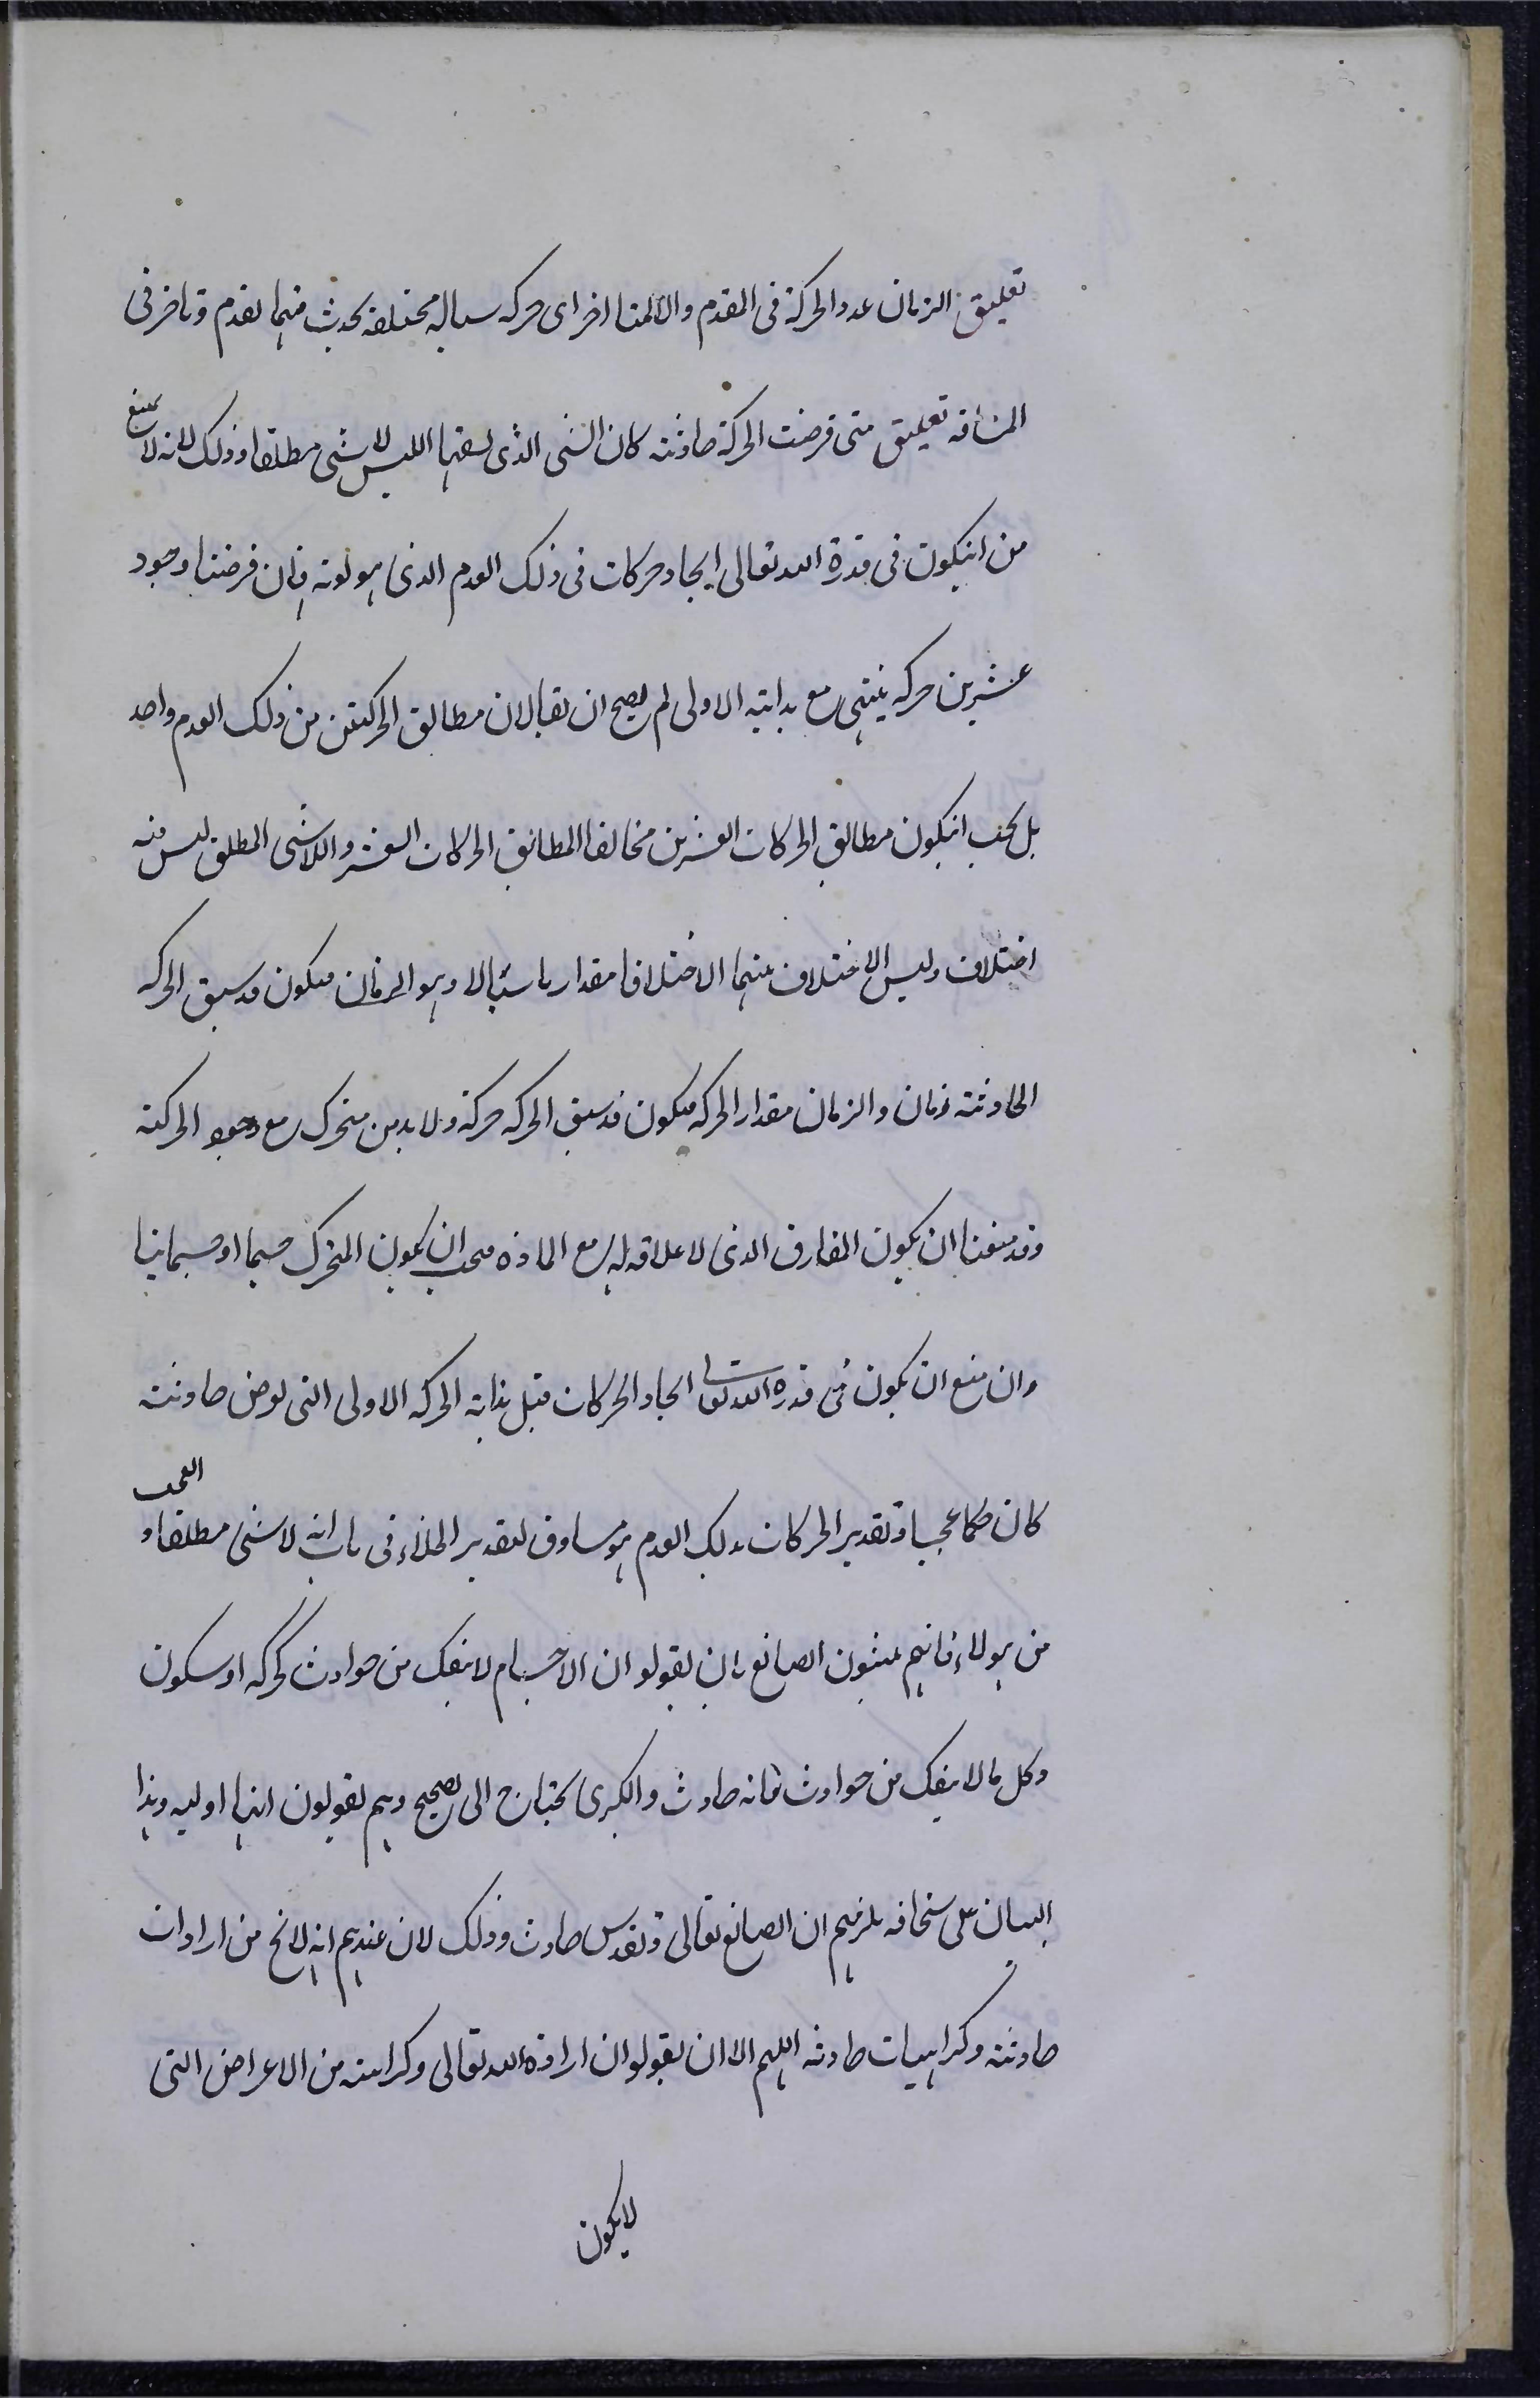 تعليق الزمان عدد الحركة فى المتقدم والمتاخر اى حركه سياله مختلفه يحدث منها تقدم وتاخر فى
المسافه تعليق متى فرضت الحركة حادثه كان الشى الذى يسبقها الليس لا شى مطلقا وذلك لانه لا يمتنع
من انيكون فى قدرة الله تعالى ايجاد حركات فى ذلك العدم الذى هو لونه فان فرضنا وجود
عشرين حركه ينتهى مع بدايته الاولى لم يصح ان يقال ان مطابق الحركتين من ذلك العدم واحد
بل يجب انيكون مطابق الحركات العشرين مخالفا لمطابق الحركات العشر واللاشى المطلق ليس فيه
اختلاف وليس الاختلاف بينهما الا اختلافا مقداريا سيالا وهو الزمان فيكون قد سبق الحركه
الحادثه زمان والزمان مقدار الحركه فيكون قد سبق الحركه حركة ولا بد من متحرك مع وجود الحركة
وقد منعنا ان يكون المفارق الذى لا علاقه له مع الماده فيجب ان يكون المتحرك جسما او جسمانيا
وان منع ان يكون فى قدره الله تعالى ايجاد الحركات قبل بداية الحركه الاولى التى يوض حادثه
كان حكما عجيبا وتقدير الحركات ذلك العدم هو مساوق لتقدير الخلاء فى باب انه لا شى مطلقا والعجب
من هولاء فانهم يثبتون الصانع بان يقولو ان الاجسام لا ينفك من حوادث كحركه او سكون
وكل ما لا ينفك من حوادث فانه حادث والكبرى يحتاج الى تصحيح وهم يقولون انها اوليه وهذا
البيان على سخافه يلزمهم ان الصانع تعالى وتقدس حادث وذلك لان عندهم انه لا يخ من ارادات
حادثه وكراهيات حادثه اللهم الا ان يقولو ان ارادة الله تعالى وكراهته من الاعراض التى
لا يكون